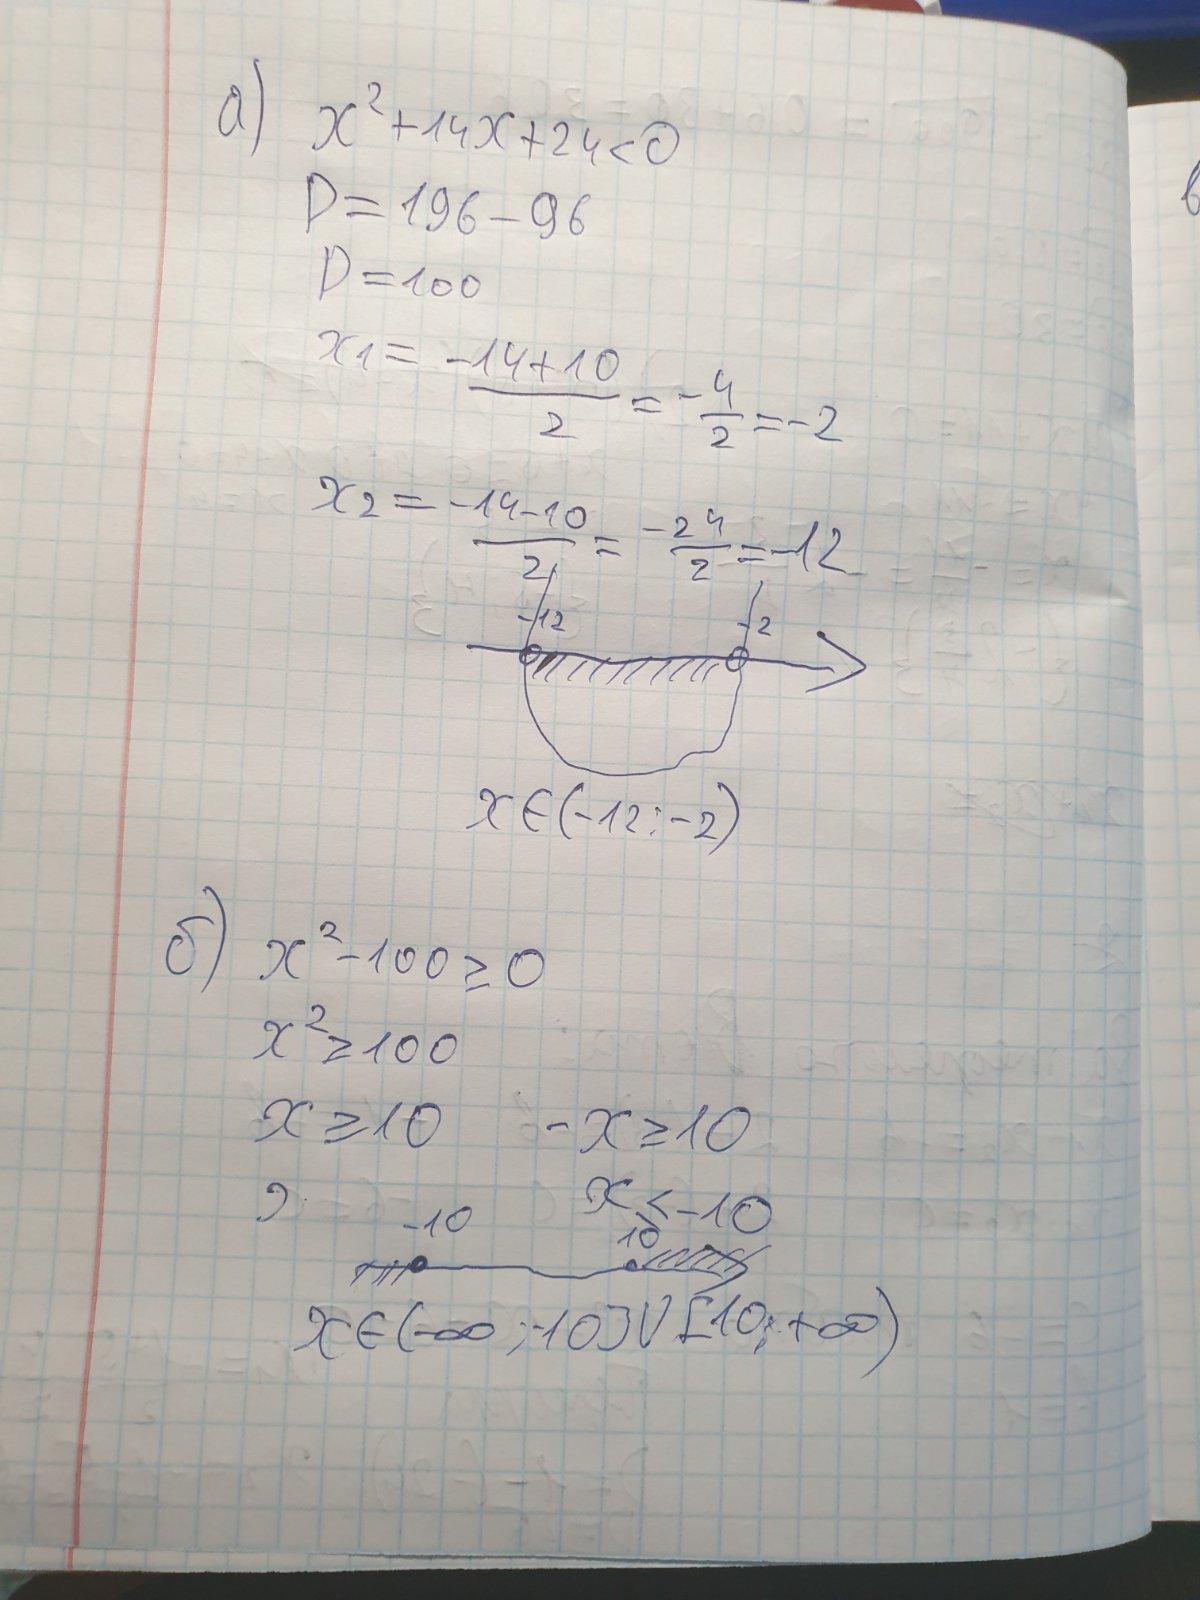 а) x²+14x+24<0
D=196-96
D=100
x1= -14+10/2 = -4/2 =-2
x2= -14-10/2 = -24/2 =-12
-12 -2
x∈(-12;-2)
б) x²-100≥0
x²≥100
x≥10 -x≥10
x≤-10
-10 10
x∈(-∞;-10]U[10;+∞)
в